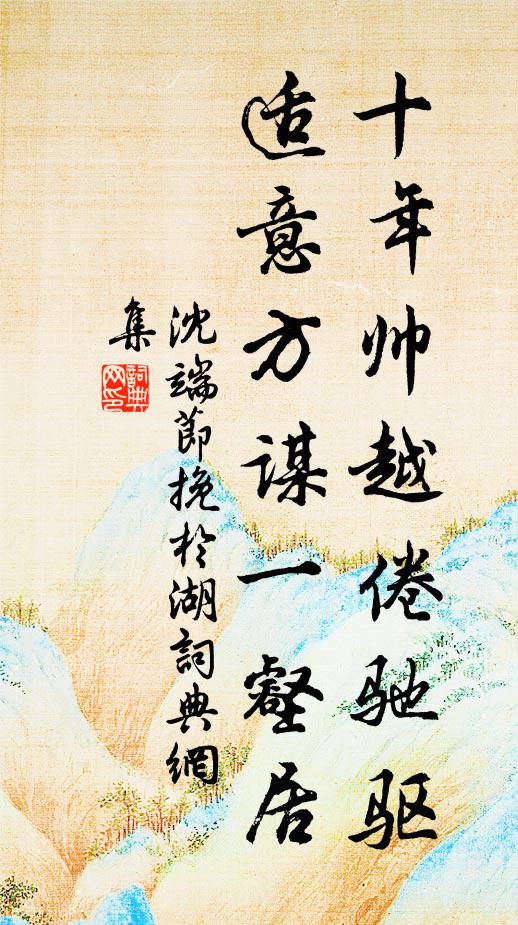 十年帅越倦驰驱
适意方谋一壑居
沈端節挽於湖詞典網
集
詞典
网印